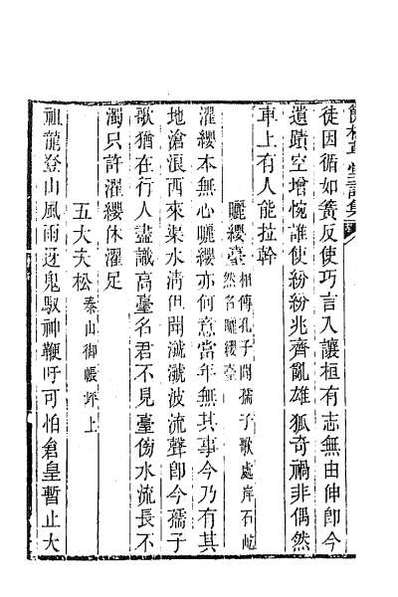 徒因循如簧反使巧言入讓桓有志無由伸卽今
遺蹟空增惋誰使紛紛兆齊亂雄狐奇禍非偶然
車上有人能拉幹
曬纓臺相傳孔子問孺子歌處岸石屹然名曬纓臺
濯纓本無心曬纓亦何意當年無其事今乃有其
地滄浪西來渠水淸但聞濺濺波流聲卽今孺子
歌猶在行人盡識高臺名君不見臺傍水流長不
濁只許濯纓休濯足
五大夫松泰山御帳坪上
祖龍登山風雨迓鬼馭神鞭吁可怕倉皇暫止大